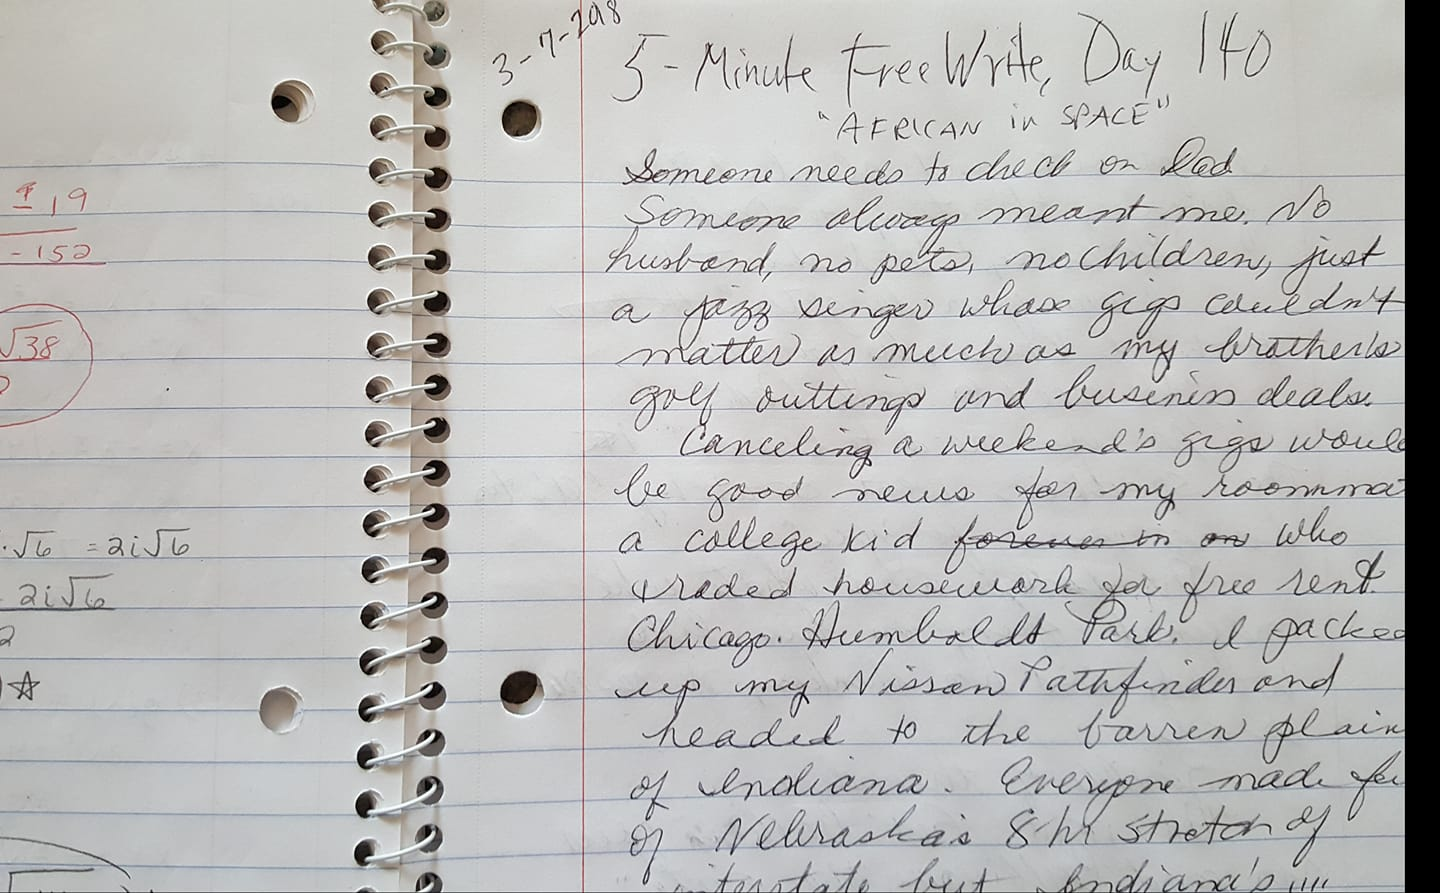 ± 19
-152
√38
3-7-2018
5-Minute Free Write, Day 140
"AFRICAN in SPACE"
Someone needs to check on Dad
Someone always meant me. No
husband, no pets, no children, just
a jazz singer whose gigs couldn't
matter as much as my brother's
golf outtings and business deals.
Canceling a weekend's gigs would
be good news for my roomma
a college kid forever in on who
traded housework for free rent.
Chicago. Humboldt Park. I packed
up my Nissan Pathfinder and
headed to the barren plain
of Indiana. Everyone made fu
of Nebraska's 8 hr stretch of
interstate but Indiana's
·√6 = 2i√6
2i√6
2